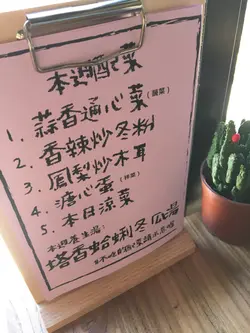 本週配菜
1. 蒜香通心菜(隨菜)
2. 香辣炒冬粉
3. 鳳梨炒木耳
4. 溏心蛋(拌菜)
5. 本日涼菜
本週養生湯:
塔香蛤蜊冬瓜湯